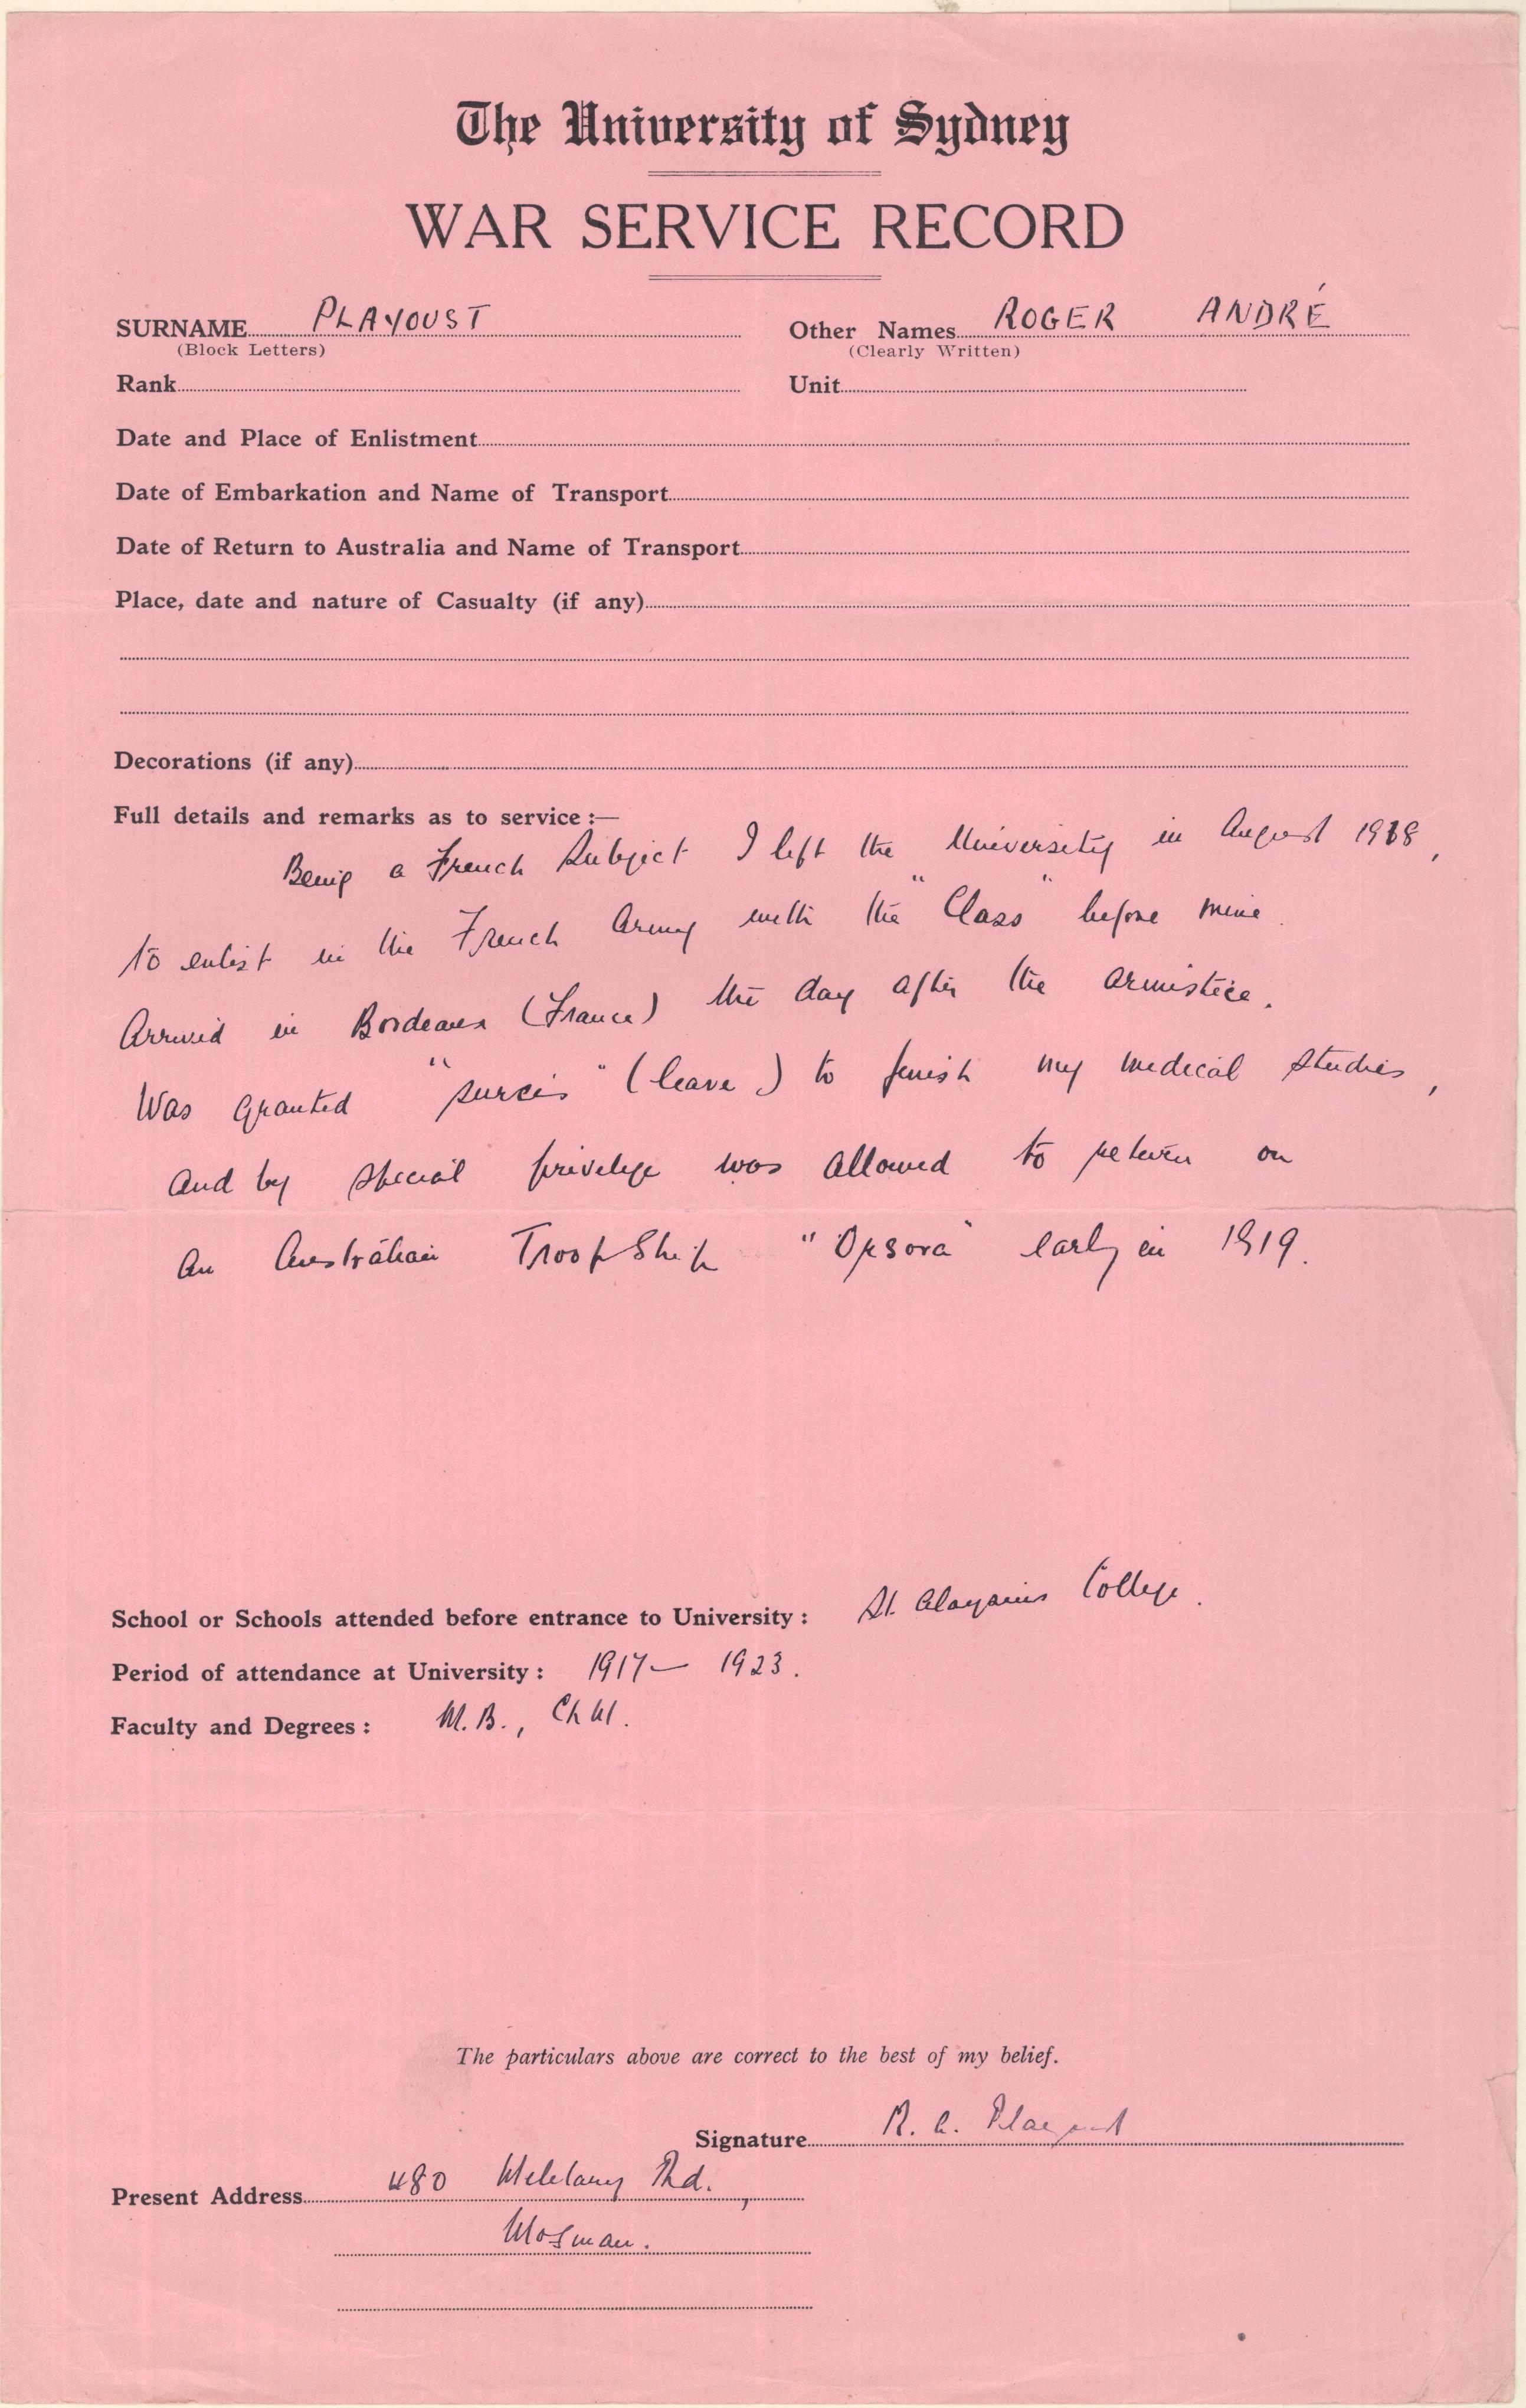 The University of Sydney
WAR SERVICE RECORD
SURNAME PLAYOUST Other Names ROGER ANDRÉ
(Block Letters) (Clearly Written)
Rank Unit
Date and Place of Enlistment
Date of Embarkation and Name of Transport
Date of Return to Australia and Name of Transport
Place, date and nature of Casualty (if any)
Decorations (if any)
Full details and remarks as to service :—
Being a French Subject I left the University in August 1918,
to enlist in the French Army with the "Class" before mine.
Arrived in Bordeaux (France) the day after the armistice.
Was granted "sursis" (leave) to finish my medical studies,
and by special privelege was allowed to return on
an Australian Troop Ship "Orsova" early in 1919.
School or Schools attended before entrance to University : St. Aloysius College.
Period of attendance at University : 1917 — 1923.
Faculty and Degrees : M.B., Ch M.
The particulars above are correct to the best of my belief.
Signature R. A. Playoust
Present Address 480 Military Rd.,
Mosman.